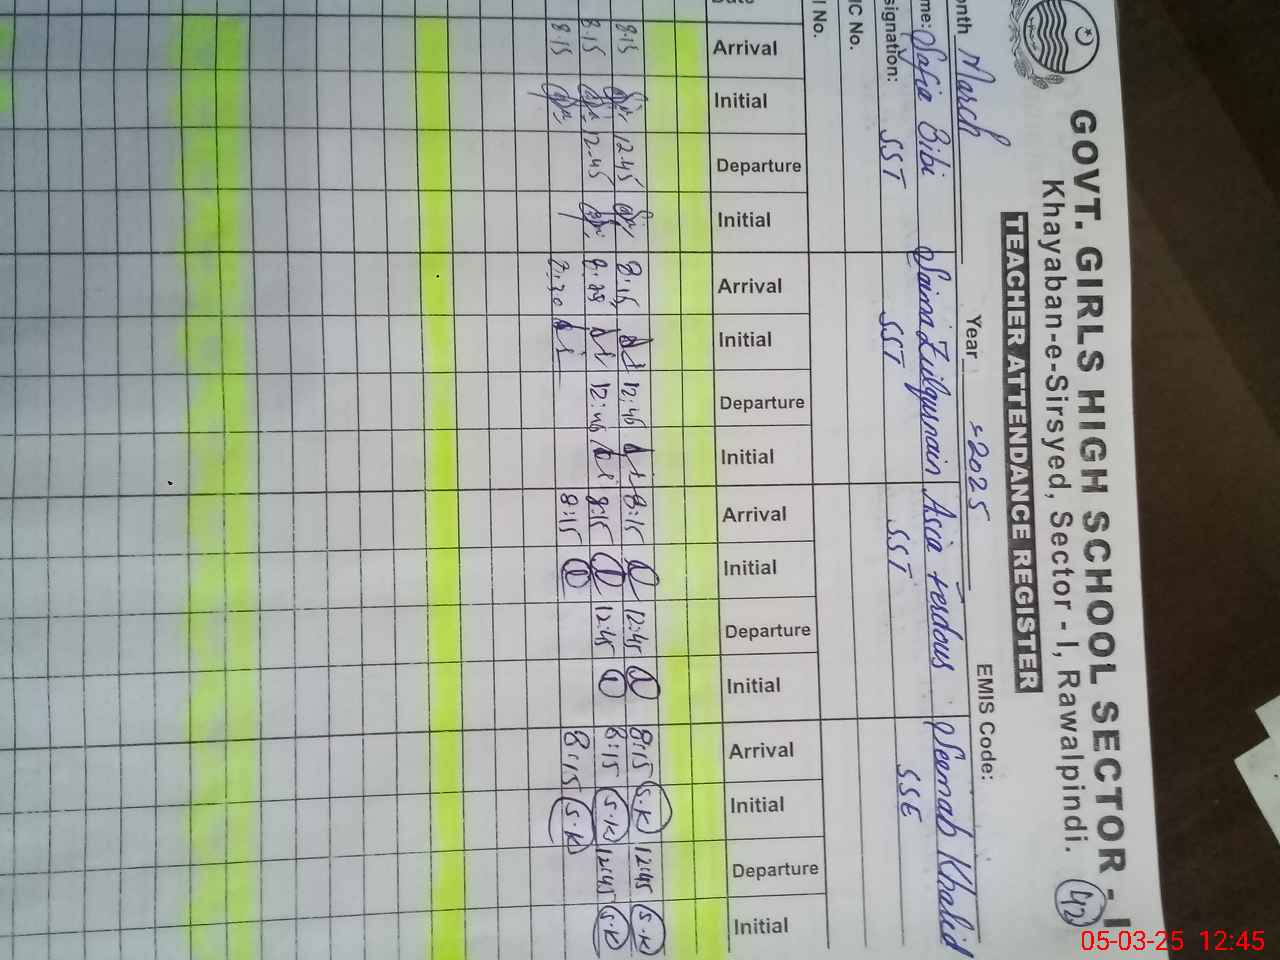 GOVT. GIRLS HIGH SCHOOL SECTOR - I
Khayaban-e-Sirsyed, Sector - I, Rawalpindi. 42
TEACHER ATTENDANCE REGISTER
onth March Year 2025 EMIS Code:
me: Safia Bibi Saima Zulqurnain Asia Ferdous Seemab Khalid
signation: SST SST SST SSE
IC No.
l No.
Date Arrival Initial Departure Initial Arrival Initial Departure Initial Arrival Initial Departure Initial Arrival Initial Departure Initial
8:15 12:45 8:15 12:45 8:15 12:45 8:15 S.K 12:45 S.K
8:15 12:45 8:15 12:45 8:15 S.K 12:45 S.K
8:15 8:15 8:15 S.K
05-03-25 12:45